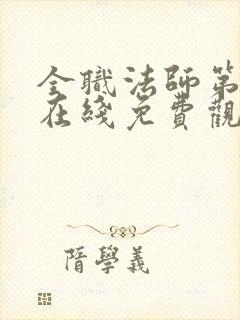 全職法師第
在綫免費觀
隋學義